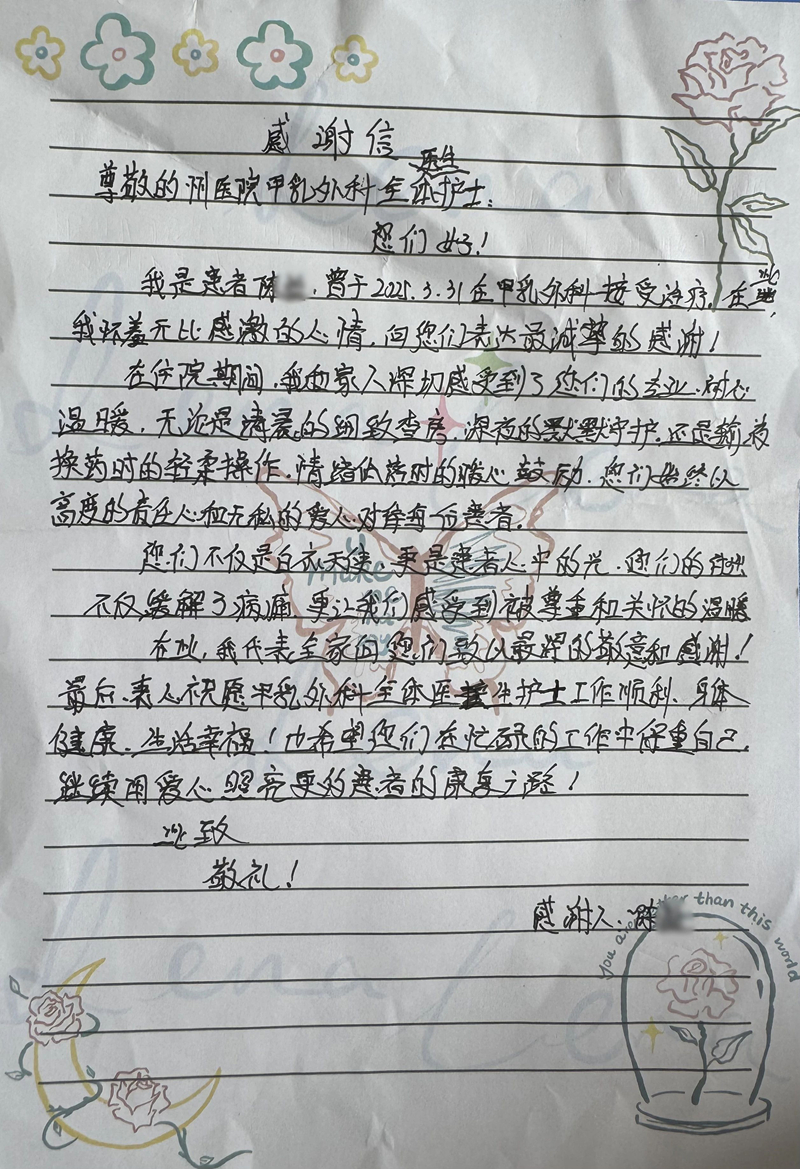 感谢信
医生
尊敬的附医院甲乳外科全体护士:
您们好!
我是患者陈 ,曾于2025.3.31在甲乳外科接受治疗,在此,
我怀着无比感激的心情,向您们表达最诚挚的感谢!
在住院期间,我和家人深切感受到了您们的专业、耐心
温暖,无论是清晨的细致查房,深夜的默默守护,还是输液
换药时的轻柔操作,情绪低落时的暖心鼓励,您们始终以
高度的责任心和无私的爱心对待每一位患者。
您们不仅是白衣天使,更是患者心中的光,您们的付出
不仅缓解了病痛,更让我们感受到被尊重和关怀的温暖
在此,我代表全家向您们致以最深的敬意和感谢!
最后,衷心祝愿甲乳外科全体医生护士工作顺利、身体
健康、生活幸福!也希望您们在忙碌的工作中保重自己,
继续用爱心照亮更多患者的康复之路!
此致
敬礼!
感谢人:陈
You are other than this world
Make